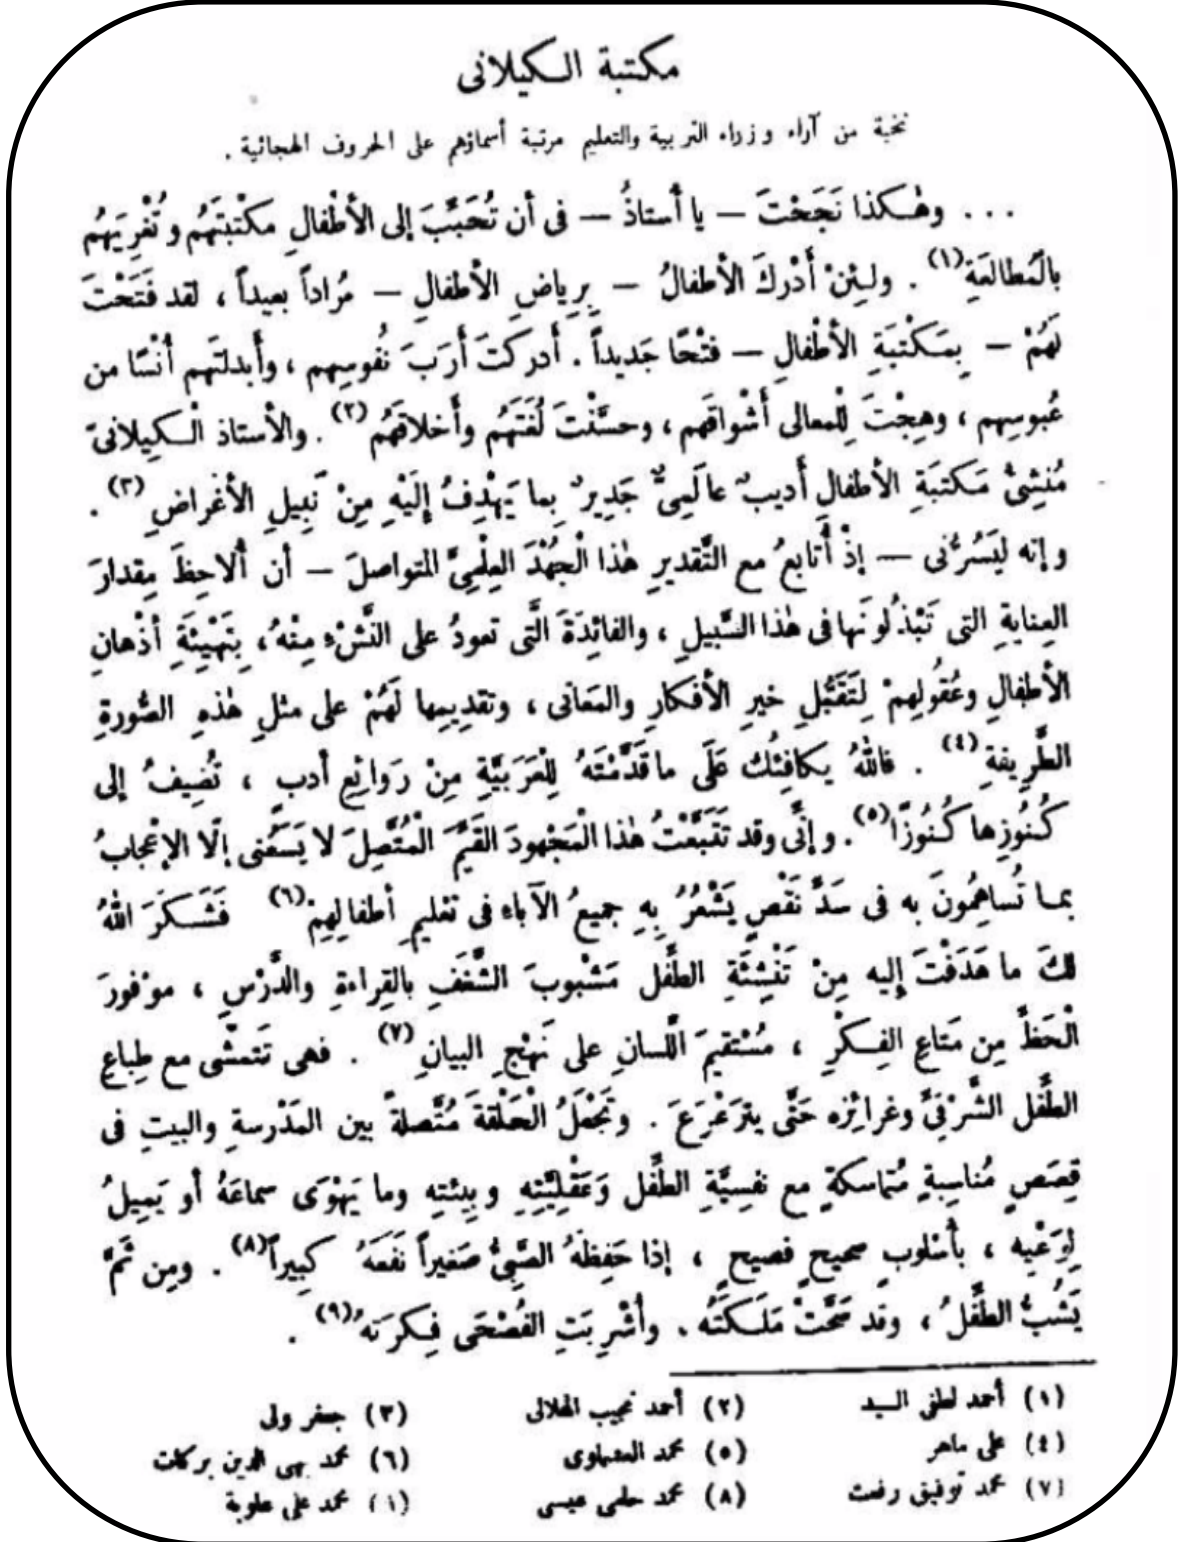 مكتبة الكيلانى
نخبة من آراء وزراء التربية والتعليم مرتبة أسماؤهم على الحروف الهجائية .
... وهٰكذا نَجَحْتَ — يا أستاذُ — فى أن تُحَبِّبَ إلى الأطْفالِ مكْتبتَهُم وتُغْرِيَهُم
بالمُطالعَةِ(١) . ولئِنْ أدْركَ الأطفالُ — بِرِياضِ الأطفالِ — مُراداً بعيداً ، لقد فَتَحْتَ
لَهُمْ — بِمَكْتبَةِ الأطْفالِ — فتْحًا جَديداً . أدركتَ أرَبَ نفُوسِهم ، وأَبدلتَهم أُنْسًا من
عُبوسِهم ، وهِجْتَ لِلْمعالى أشْواقَهم ، وحسَّنْتَ لُغَتَهُم وأخلاقَهُم(٢) . والأستاذ الْكيلانىّ
مُنشِئُ مَكتبَةِ الأطفالِ أديبٌ عالَمِىٌّ جَدِيرٌ بِما يَهْدِفُ إلَيْهِ مِنْ نَبِيلِ الأغْراضِ(٣) .
وإنه ليَسُرُّنى — إذْ أُتابعُ مع التَّقديرِ هٰذا الْجهْدَ العِلْمِىَّ المتواصلَ — أن أُلاحِظَ مِقدارَ
العِنايةِ التى تَبْذُلونَها فى هٰذا السَّبيلِ ، والفائِدَةَ الَّتى تعودُ على النَّشْءِ مِنْهُ ، بِتَهْيِئَةِ أذْهانِ
الأطفالِ وعُقُولِهِمْ لِتَقَبُّلِ خيرِ الأفكارِ والمَعانى ، وتقدِيمِها لَهُمْ على مثلِ هٰذهِ الصُّورةِ
الطَّرِيفةِ(٤) . فاللهُ يكافِئُك عَلَى ما قَدَّمْتَهُ لِلْعَرَبيَّةِ مِنْ رَوائِعِ أدبٍ ، تُضِيفُ إلى
كُنُوزِها كُنُوزًا(٥) . وإنّى وقد تَتَبَّعْتُ هٰذا الْمَجْهودَ القَيِّمَ الْمُتَّصِلَ لا يَسَعُنى إلّا الإعْجابُ
بما تُساهِمُونَ به فى سَدِّ نَقْصٍ يَشْعُرُ بِهِ جميعُ الآباءِ فى تعْليمِ أطفالِهِمْ(٦) فَشَكَرَ اللهُ
لكَ ما هَدَفْتَ إليه مِنْ تَنْشِئَةِ الطِّفل مَشْبوبَ الشَّغَفِ بالقِراءةِ والدَّرْسِ ، موْفورَ
الْحَظِّ مِن مَتاعِ الفِكْرِ ، مُسْتقيمَ اللِّسانِ على نَهْجِ البيانِ(٧) . فهى تَتمشَّى مع طِباعِ
الطِّفل الشَّرْقِىِّ وغرائِزِه حَتَّى يترَعْرَعَ . وتَجْعَلُ الْحَلْقةَ مُتَّصلةً بين المَدْرسةِ والبيتِ فى
قِصَصٍ مُناسِبةٍ مُتماسكةٍ مع نفسِيَّةِ الطِّفل وَعَقْلِيَّتِهِ وبِيئتِهِ وما يَهْوَى سماعَهُ أو يَميلُ
لِوَعْيِه ، بأسْلوبٍ صحيحٍ فصيحٍ ، إذا حَفِظَهُ الصَّبِىُّ صَغيراً نَفَعَهُ كبيراً(٨) . ومِن ثَمَّ
يَشِبُّ الطِّفْلُ ، وقد صَحَّتْ مَلَكَتُه . وأُشْرِبَتِ الفُصْحَى فِكرَتهُ(٩) .
(١) أحمد لطفى السيد (٢) أحمد نجيب الهلالى (٣) جعفر ولى
(٤) على ماهر (٥) محمد العشماوى (٦) محمد بهى الدين بركات
(٧) محمد توفيق رفعت (٨) محمد حلمى عيسى (٩) محمد على علوبة